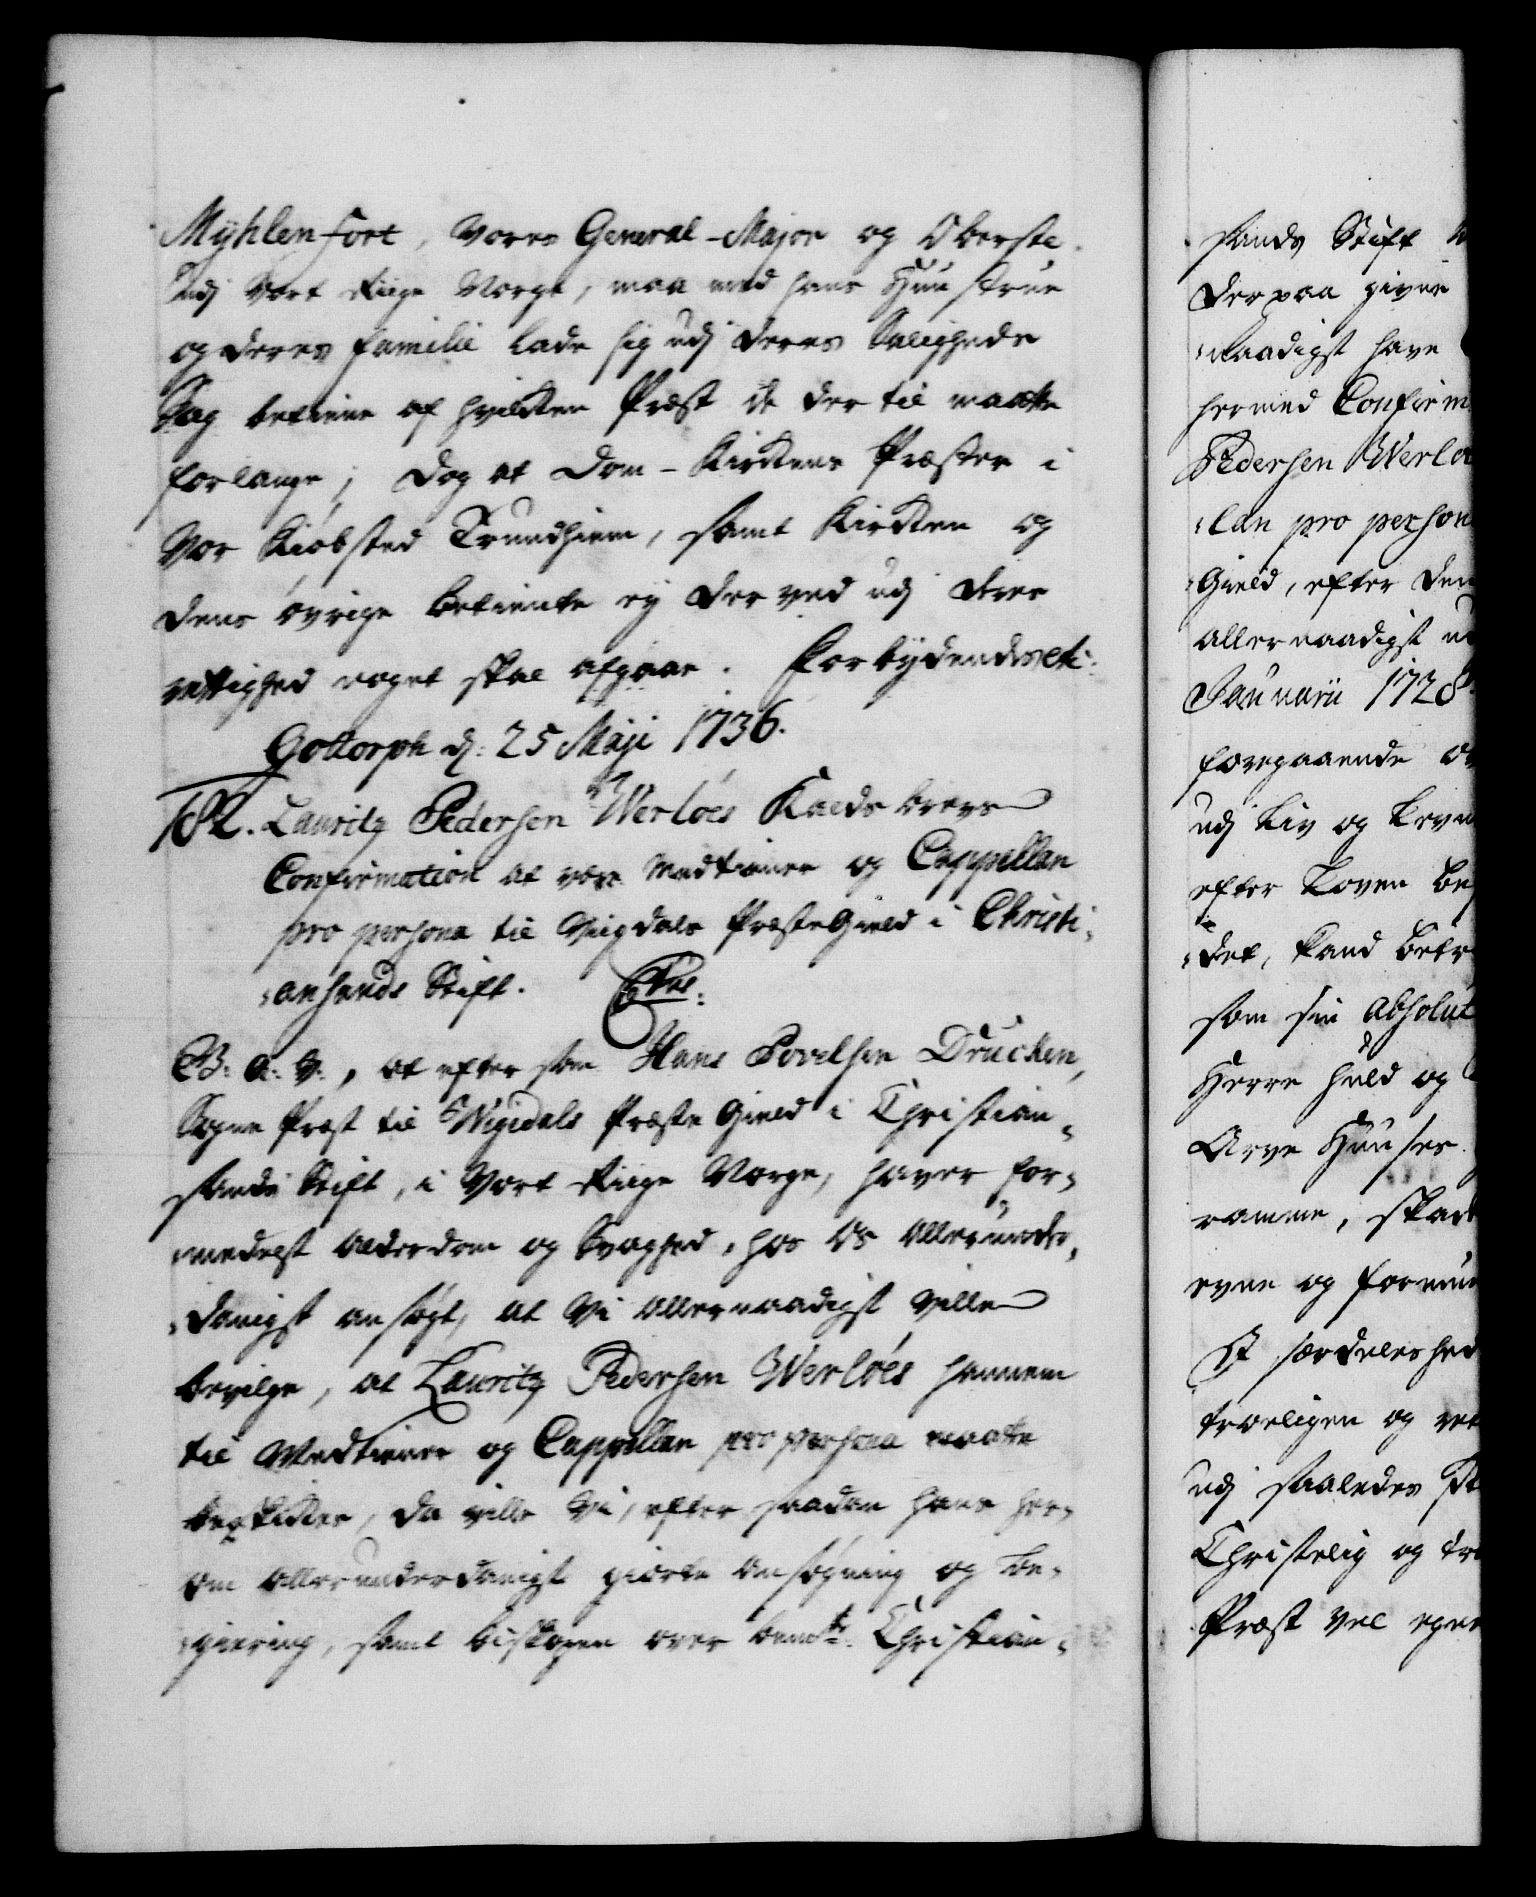 Mÿhlenfort, Vores General-Major og Oberste
udj Vort Riige Norge, maa med hans Huustrue
og deres familie lade sig udj deres Saligheds
Sag betiene af hvilken Præst de der til maatte
forlange; dog at Dom-Kirkens Præster i
Vor Kiöbsted Trundhiem, samt Kirken og
dens övrige betiente ej der ved udj deres
rettighed noget skal afgaae. Forbÿdendes etc:
Gottorph d: 25 Maji 1736.
182. Lauritz Pedersen Werlöes Kalds brevs
Confirmation at være Medtiener og Cappellan
pro persona til Viigdals Præste Gield i Christi-
-ansands Stift.
G. A. V., at efter som Hans Povelsen Drucken,
Sogne Præst til Wigedals Præste Gield i Christian-
sands Stift, i Vort Riige Norge, haver for-
-medelst Alderdom og Svaghed, hos Os allerunder-
-danigst ansögt, at Vi allernaadigst ville
bevilge, at Lauritz Pedersen Werlöes hannem
til Medtiener og Cappellan pro persona maatte
beskikkes, da ville Vi, efter saadan hans her-
om allerunderdanigst giorte ansögning og be-
-giering, samt biskopen over bemte: Christian-
sands Stift
der paa givne
-naadigst have
hermed Confirm
Pedersen Werlö
-lan pro person
Gield, efter den
allernaadigst
Januarii 1728
foregaaende
udj Liv og Levn
efter Loven
-det, kand
som sin absolut
Herre huld og
Arve Huuses
ramme, skad
evne og formu
I særdeleshed
troeligen og ret
udj saaledes
Christelig og tro
Præst vel egner